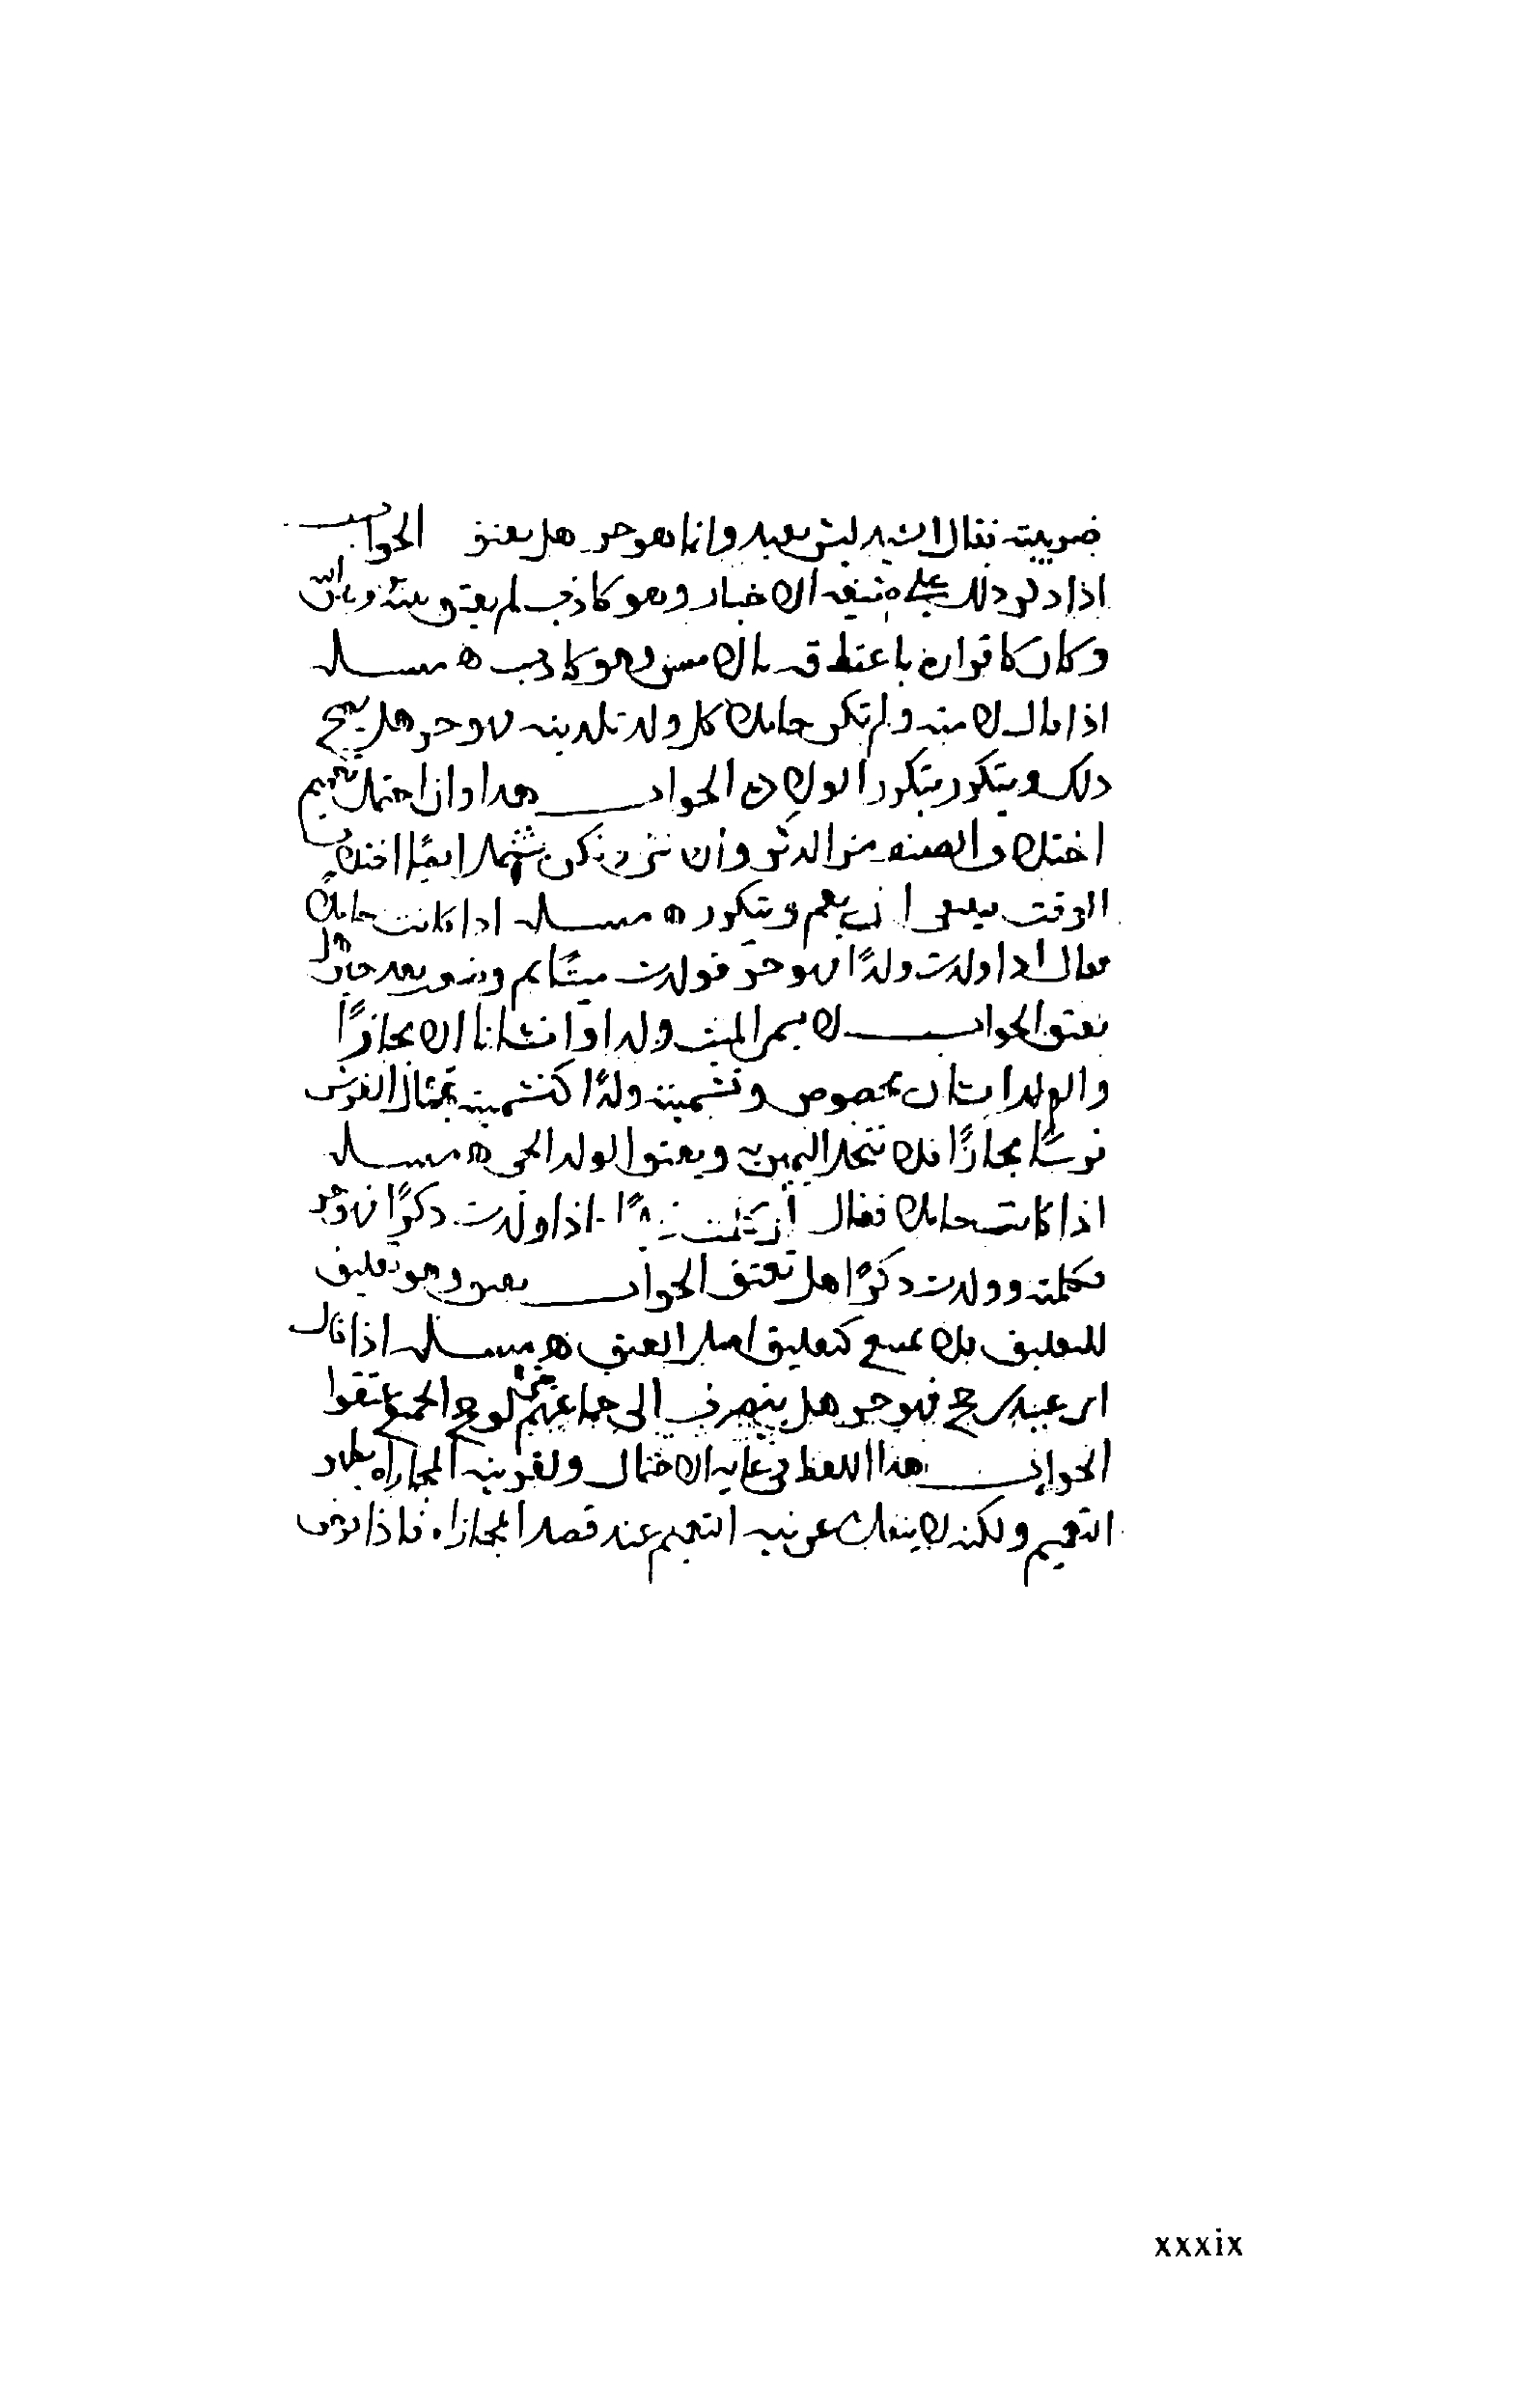 ضريبته فقال السيد ليس بعبد وانما هو حر هل يعتق الجواب
اذا ذكر ذلك على صيغه الاخبار وهو كاذب لم يعتق بينه وبين الله
وكان كاقراره باعتاقه بالامس وهو كاذب ه مسله
اذا قال لامته ولم تكن حاملا كل ولد تلدينه فهو حر هل يصح
ذلك ويتكرر بتكرر الولاده الجواب هذا وان احتمل تعميم
اختلاف الصفه من الذكر وان ثى ولكن يشمل ايضا اختلاف
الوقت فينبغي ان يعم ويتكرر ه مسله اذا كانت حاملا
فقال اذا ولدت ولدًا فهو حر فولدت ميتًا ثم ولد بعد حيًا هل
يعتق الجواب لا يسمى الميت ولدا وانسانا الا مجازًا
والولد انسان مخصوص وتسميته ولدًا كتسميته تمثال الفرس
فرسًا مجازًا فلا تنحل اليمين به ويعتق الولد الحي ه مسله
اذا كانت حاملا فقال ان كلمت زيدًا اذا ولدت ذكرًا فهو حر
فكلمته وولدت ذكرًا هل يعتق الجواب يعتق وهو تعليق
للتعليق فلا يمتنع كتعليق اصل العتق ه مسله اذا قال
اي عبيدي حج فهو حر هل ينصرف الى جماعتهم حتى لو حج الجميع عتقوا
الجواب هذا اللفظ في غايه الاحتمال ولقرينه المجازاه يظهر
التعميم ولكنه لا ينفك عن نيه التعميم عند قصد المجازاه فاذا نوى
xxxix